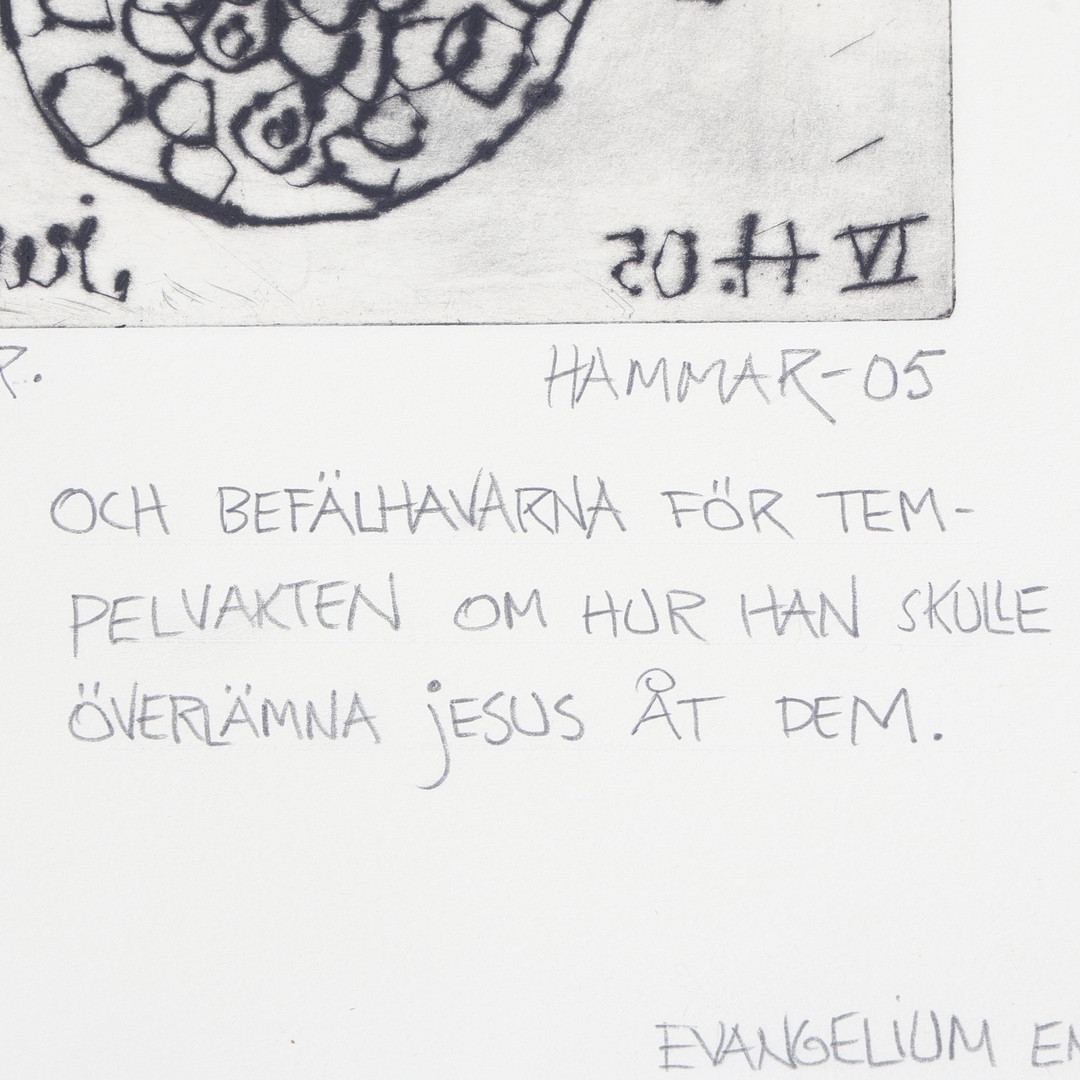 IV H. 05
R.
HAMMAR-05
OCH BEFÄLHAVARNA FÖR TEM-
PELVAKTEN OM HUR HAN SKULLE
ÖVERLÄMNA jESUS ÅT DEM.
EVANGELIUM